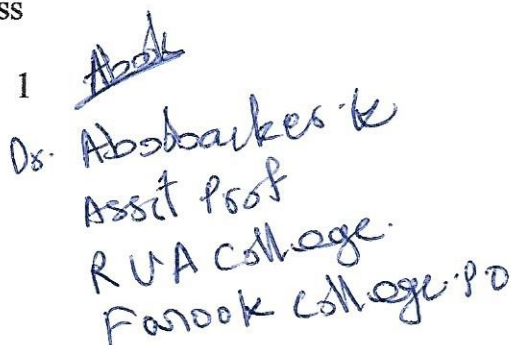 ss
1
Dr. Aboobacker.k
Assit Prof
RUA College.
Farook College.PO